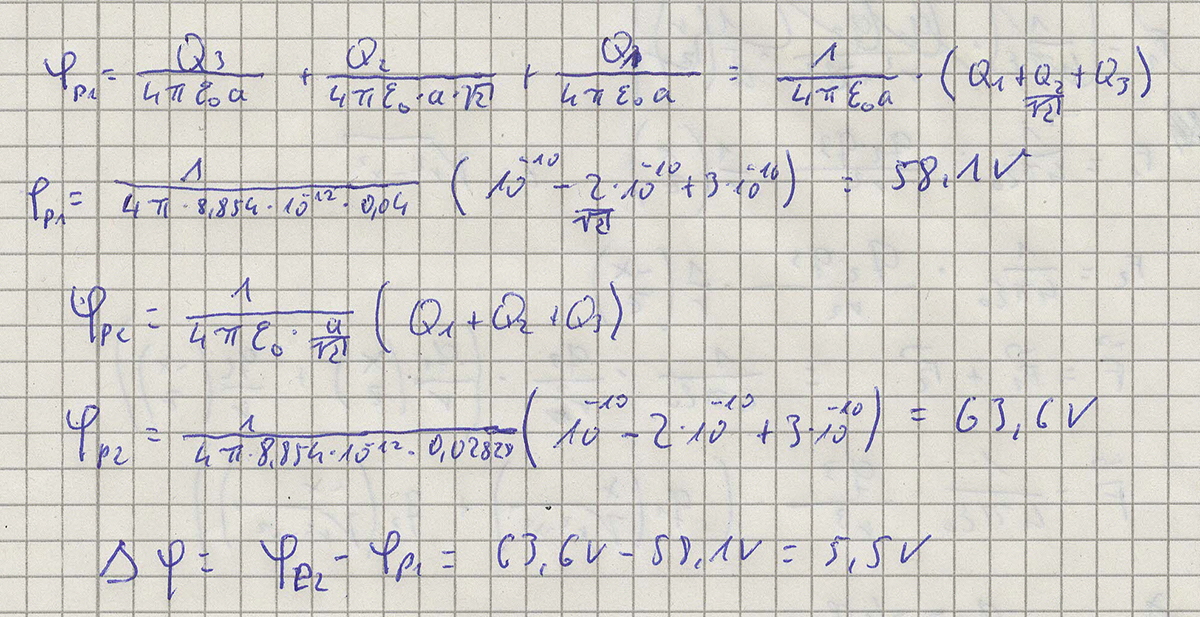 φ_P1 = Q_3/(4πε_0 a) + Q_2/(4πε_0·a·√2) + Q_1/(4πε_0 a) = 1/(4πε_0 a) · (Q_1 + Q_2/√2 + Q_3)
φ_P1 = 1/(4π·8,854·10^-12·0,04) (10^-10 - 2/√2·10^-10 + 3·10^-10) = 58,1V
φ_P2 = 1/(4πε_0·a/√2) (Q_1 + Q_2 + Q_3)
φ_P2 = 1/(4π·8,854·10^-12·0,02828) (10^-10 - 2·10^-10 + 3·10^-10) = 63,6V
Δφ = φ_P2 - φ_P1 = 63,6V - 58,1V = 5,5V